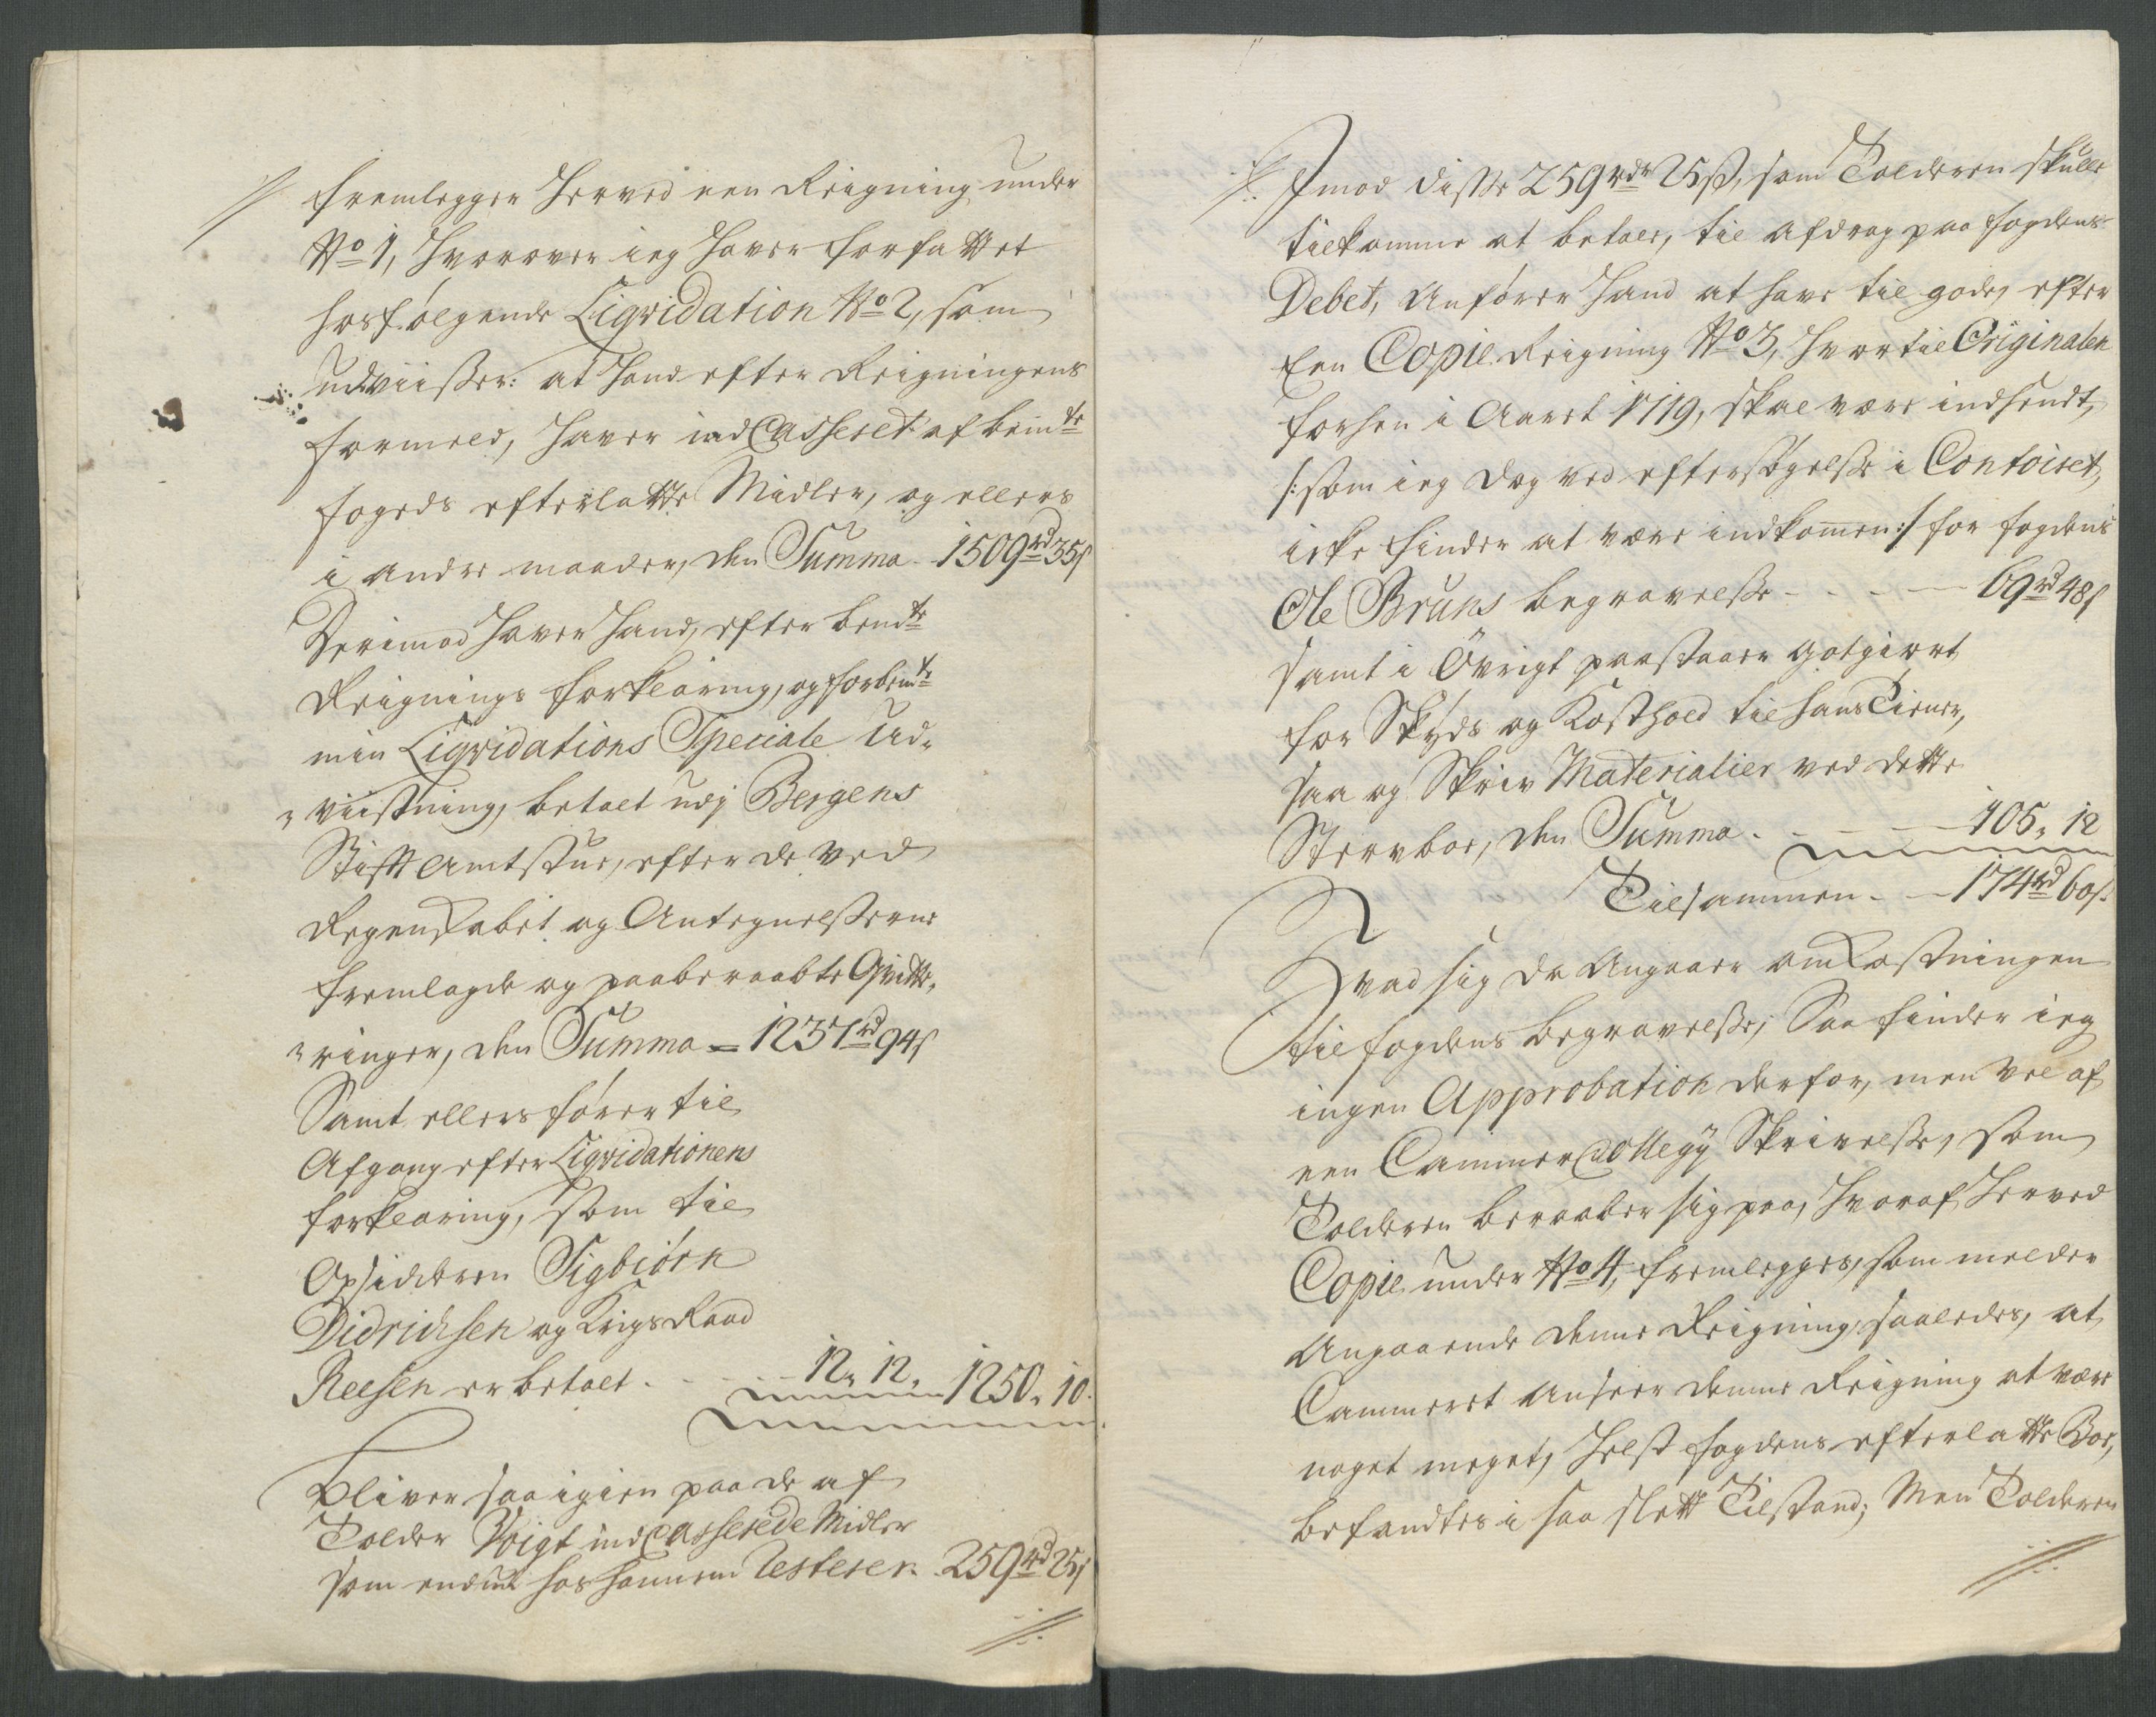 fremlegger herved een Reigning under
No 1, hvorover ieg haver forfattet
hosfølgende Liqvidation No 2, som
udviisser: at hand efter Reigningens
formeld, haver indCasseret af bemte
fogeds efterlatte Midler, og ellers
i andre maader, den Summa - 1509rd 35s
Derimod haver hand, efter bemte
Reignings forklaring, og forbemte
min Liqvidations Speciale Ud-
-viisning, betalt udj Bergens
Stift Amtstue, efter de ved
Regenskabet og Antegnelsserne
fremlagde og paaberaabte Qvitte-
-ringer, den Summa = 1237rd 94s
Samt ellers fører til
Afgang efter Liqvidationens
forklaring, som til
Opsidderen Sigbiørn
Didrichsen og KrigsRaad
Reesen er betalt. - - - 12, 12, 1250, 10.
Bliver saa igien paa de af
Tolder Voigt indCasserede Midler
som endnu hos hannem resterer. 259rd 25s
Imod disse 259rdr 25s, som Tolderen skulle
tilkomme at betale, til afdrag paa fogdens
Debet, Anfører hand at have til gode, efter
Een Copie Reigning No 3, hvortil Originalen
forhen i Aaret 1719, skal være indsendt,
/:som ieg dog ved eftersøgelsse i Contoiret,
icke finder at være indkommen:/ for fogdens
Ole Bruns begravelsse - - - - 69rd 48s
samt i Øvrigt paastaaer gotgiort
for Skyds og Kosthold til hans Tiener,
saa og Skriv Materialier ved dette
Sterrboe, den Summa. - - - 105, 12
Tilsammen. - 174rd 60s.
Hvad sig da Angaaer omkostningen
til fogdens begravelsse, Saa finder ieg
ingen Approbation derfor, men vel af
een CammerCollegij Skrivelsse, som
Tolderen beraaber sig paa, hvoraf herved
Copie under No 4, fremlegges, som melder
Angaaende denne Reigning, saaledes, at
Cammeret Anseer denne Reigning at være
noget meget, helst fogdens efterlatte Boe,
befandtes i saa slett Tilstand; Men Tolderen